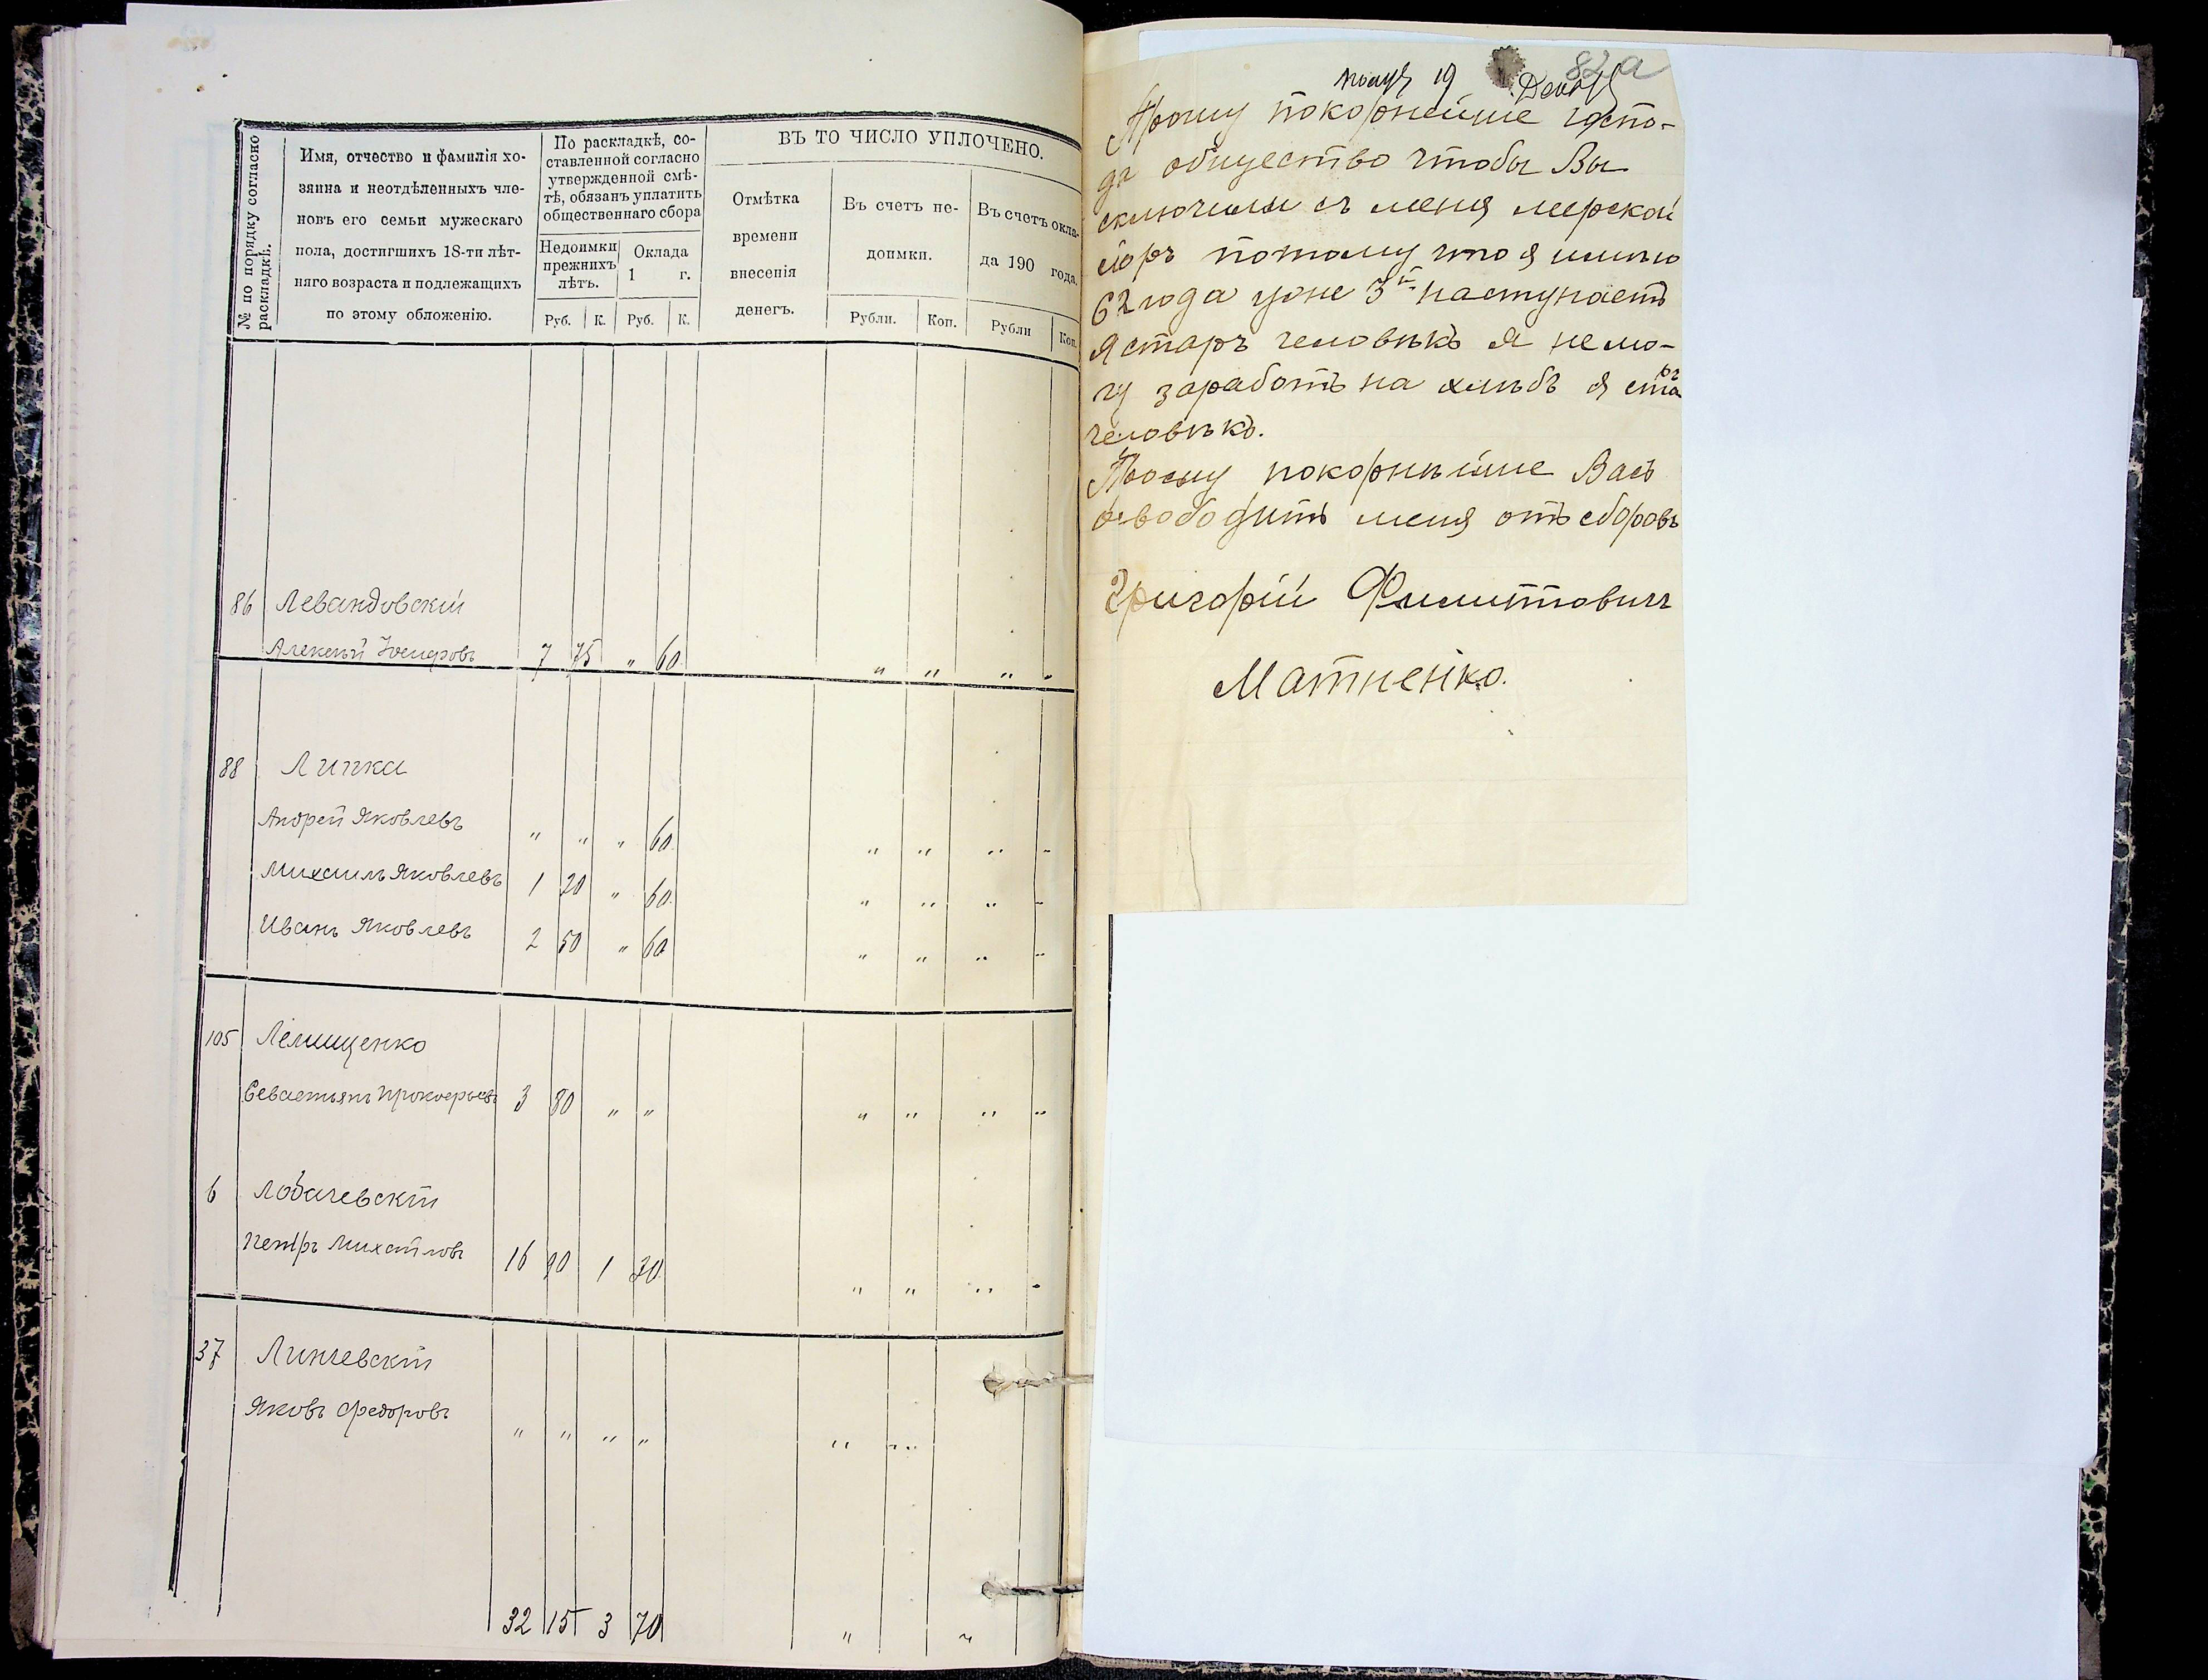 № по порядку согласно раскладкѣ.
Имя, отчество и фамилія хо-
зяина и неотдѣленныхъ чле-
новъ его семьи мужескаго
пола, достигшихъ 18-ти лѣт-
няго возраста и подлежащихъ
по этому обложенію.
По раскладкѣ, со-
ставленной согласно
утвержденной смѣ-
тѣ, обязанъ уплатить
общественнаго сбора
Недоимки прежнихъ лѣтъ.
Оклада 1 г.
Руб. К. Руб. К.
ВЪ ТО ЧИСЛО УПЛОЧЕНО.
Отмѣтка
времени
внесенія
денегъ.
Въ счетъ не-
доимки.
Рубли. Коп.
Въ счетъ окла-
да 190 года.
Рубли Коп.
86 Левандовскій
Алексѣй 7 75 " 60 " " " "
88 Липка
Андрей Яковлевъ " " " 60 " " " "
Михаилъ Яковлевъ 1 20 " 60 " " " "
Иванъ Яковлевъ 2 50 " 60 " " " "
105 Лемищенко
Севастьянъ Прокофьевъ 3 80 " " " " " "
6 Лобачевскій
Петръ Михайловъ 16 90 1 30 " " " "
37 Линчевскій
Яковъ Федоровъ " " " " " "
32 15 3 70 " "
82а
19 Декаб
Прошу покорнейше госпо-
да общество чтобы Вы
сключили съ меня мерской
сборъ потому что я имѣю
62 года уже 3й наступаетъ
Я старъ человѣкъ я не мо-
гу заработь на хлѣбъ я старъ
человѣкъ.
Прошу покорнѣйше Васъ
освободить меня отъ сборовъ
Григорій Филиптовичъ
Матиенко.